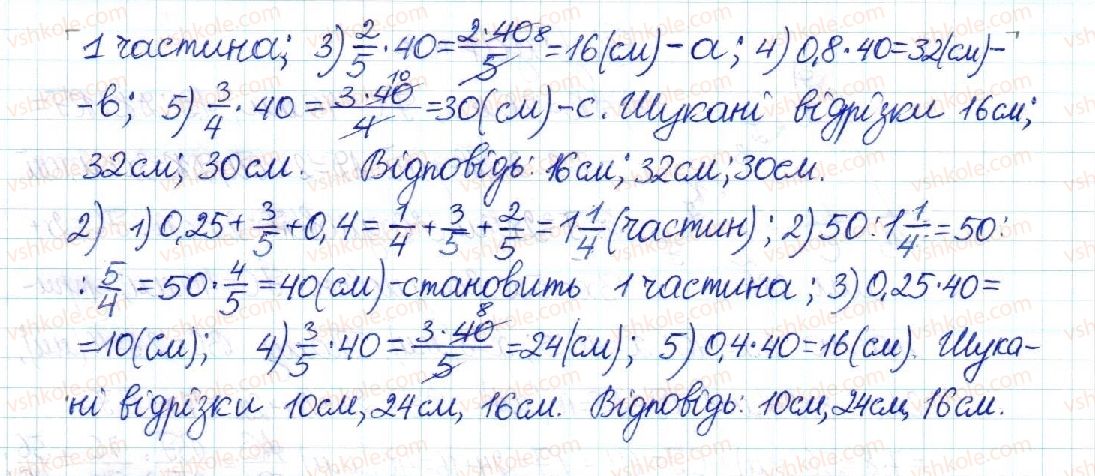 1 частина; 3) 2/5 · 40 = 2·40 8/5 = 16(см) – а; 4) 0,8 · 40 = 32(см) –
– в; 5) 3/4 · 40 = 3·40 10/4 = 30(см) – с. Шукані відрізки 16см;
32см; 30см. Відповідь: 16см; 32см; 30см.
2) 1) 0,25 + 3/5 + 0,4 = 1/4 + 3/5 + 2/5 = 1 1/4 (частин); 2) 50 : 1 1/4 = 50 :
: 5/4 = 50 · 4/5 = 40(см) – становить 1 частина; 3) 0,25 · 40 =
= 10(см); 4) 3/5 · 40 = 3·40 8/5 = 24(см); 5) 0,4 · 40 = 16(см). Шука-
ні відрізки 10см, 24см, 16см. Відповідь: 10см, 24см, 16см.